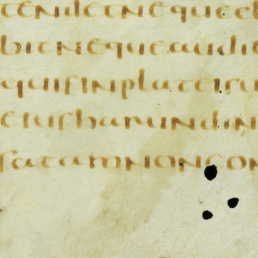 tendetnequecl
bitnequeaudie
quisinplateisu
eiusharundin
satamnoncon